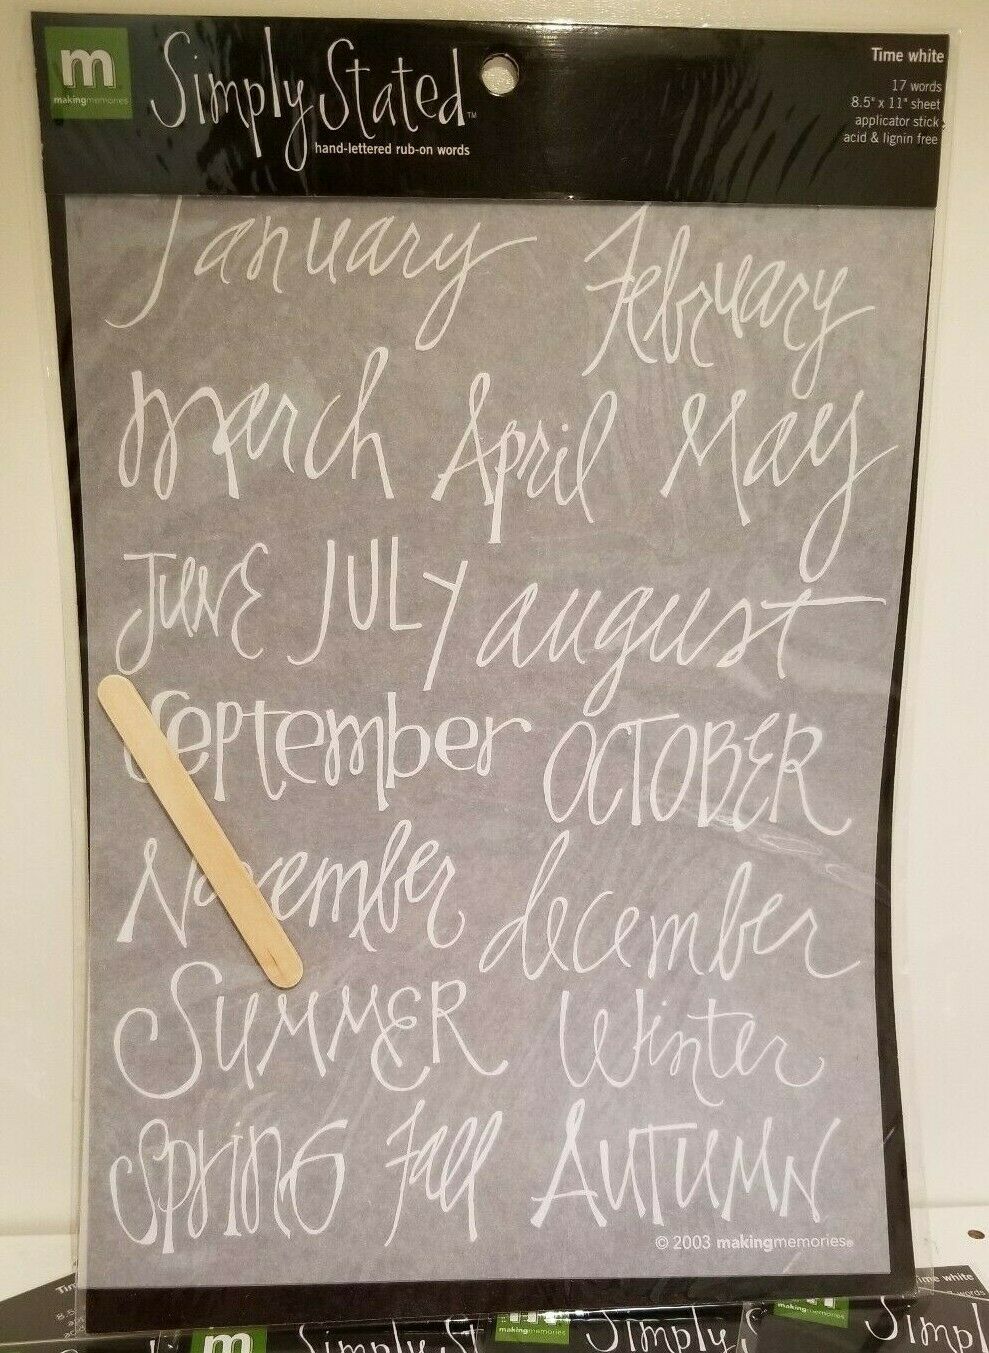 m
makingmemories
Simply Stated™
hand-lettered rub-on words
Time white
17 words
8.5" x 11" sheet
applicator stick
acid & lignin free
January February
march April May
JUNE JULY august
September OCTOBER
November december
SUMMER Winter
SPRING Fall AUTUMN
© 2003 makingmemories®
m Simply St
makingmemories
Simply S
makingmemories
Simpl
ime white
words